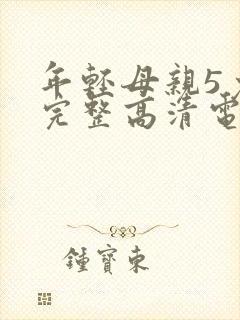 年輕母親5
完整高清電
鍾寶東